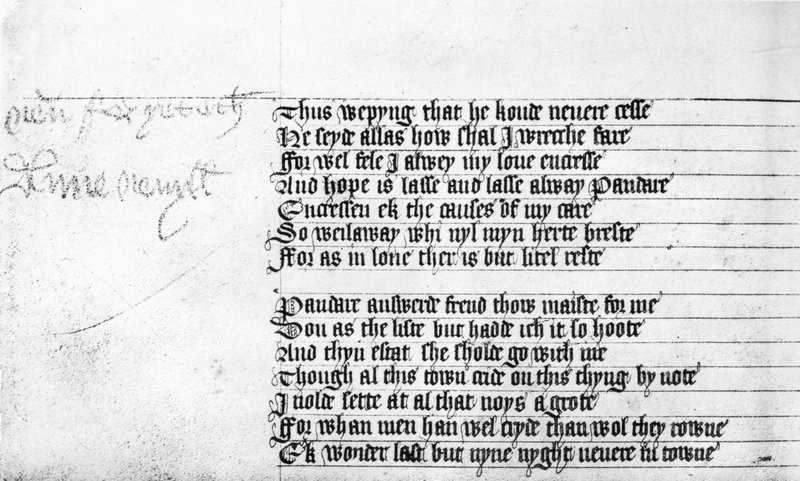 Thus wepyng that he koude neuere cesse
He seyde allas how shal I wrecche fare
Ffor wel fele I alwey my loue encresse
And hope is lasse and lasse alway Pandare
Encressen ek the causes of my care
So weilaway whi nyl myn herte breste
Ffor as in loue ther is but litel reste
Pandare answerde frend thow maiste for me
Don as the liste but hadde ich it so hoote
And thyn estat she sholde go with me
Though al this town cride on this thyng by note
I nolde sette at al that noys a grote
Ffor whan men han wel cryde than wol they rowne
Ek wonder last but nyne nyght neuere in towne